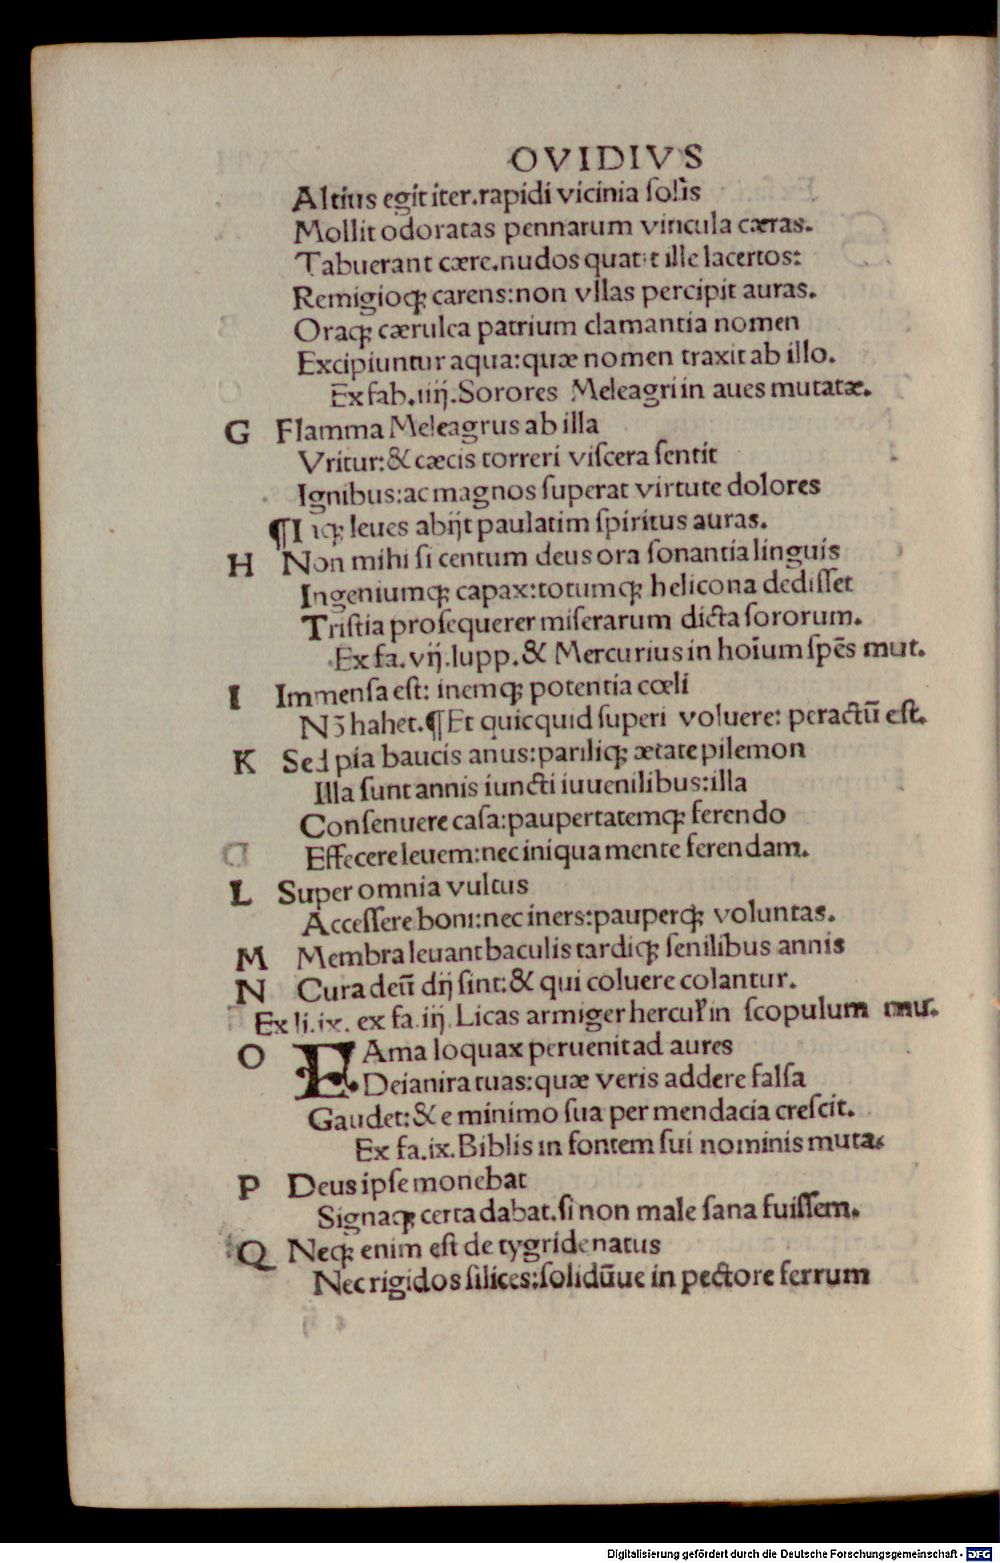 OVIDIVS
Altius egit iter.rapidi vicinia solis
Mollit odoratas pennarum vincula cæras.
Tabuerant cære.nudos quatit ille lacertos:
Remigioq; carens:non vllas percipit auras.
Oraq; cærulea patrium clamantia nomen
Excipiuntur aqua:quæ nomen traxit ab illo.
Ex fab.iiij.Sorores Meleagri in aues mutatæ.
G Flamma Meleagrus ab illa
Vritur:& cæcis torreri viscera sentit
Ignibus:ac magnos superat virtute dolores
¶Iiq; leues abijt paulatim spiritus auras.
H Non mihi si centum deus ora sonantia linguis
Ingeniumq; capax:totumq; helicona dedisset
Tristia prosequerer miserarum dicta sororum.
Ex fa.vij.Iupp.& Mercurius in hoīum spēs mut.
I Immensa est: inemq; potentia cœli
Nȝ hahet.¶Et quicquid superi voluere: peractū est.
K Sed pia baucis anus:pariliq; ætate pilemon
Illa sunt annis iuncti iuuenilibus:illa
Consenuere casa:paupertatemq; ferendo
Effecere leuem:nec iniqua mente ferendam.
L Super omnia vultus
Accessere boni:nec iners:pauperq; voluntas.
M Membra leuant baculis tardiq; senilibus annis
N Cura deū dij sint:& qui coluere colantur.
Ex li.ix. ex fa.iij.Licas armiger hercul' in scopulum mu.
O FAma loquax peruenit ad aures
Deianira tuas:quæ veris addere falsa
Gaudet:& e minimo sua per mendacia crescit.
Ex fa.ix.Biblis in fontem sui nominis muta.
P Deus ipse monebat
Signaq; certa dabat.si non male sana fuissem.
Q Neq; enim est de tygride natus
Nec rigidos silices:solidūue in pectore ferrum
Digitalisierung gefördert durch die Deutsche Forschungsgemeinschaft - DFG